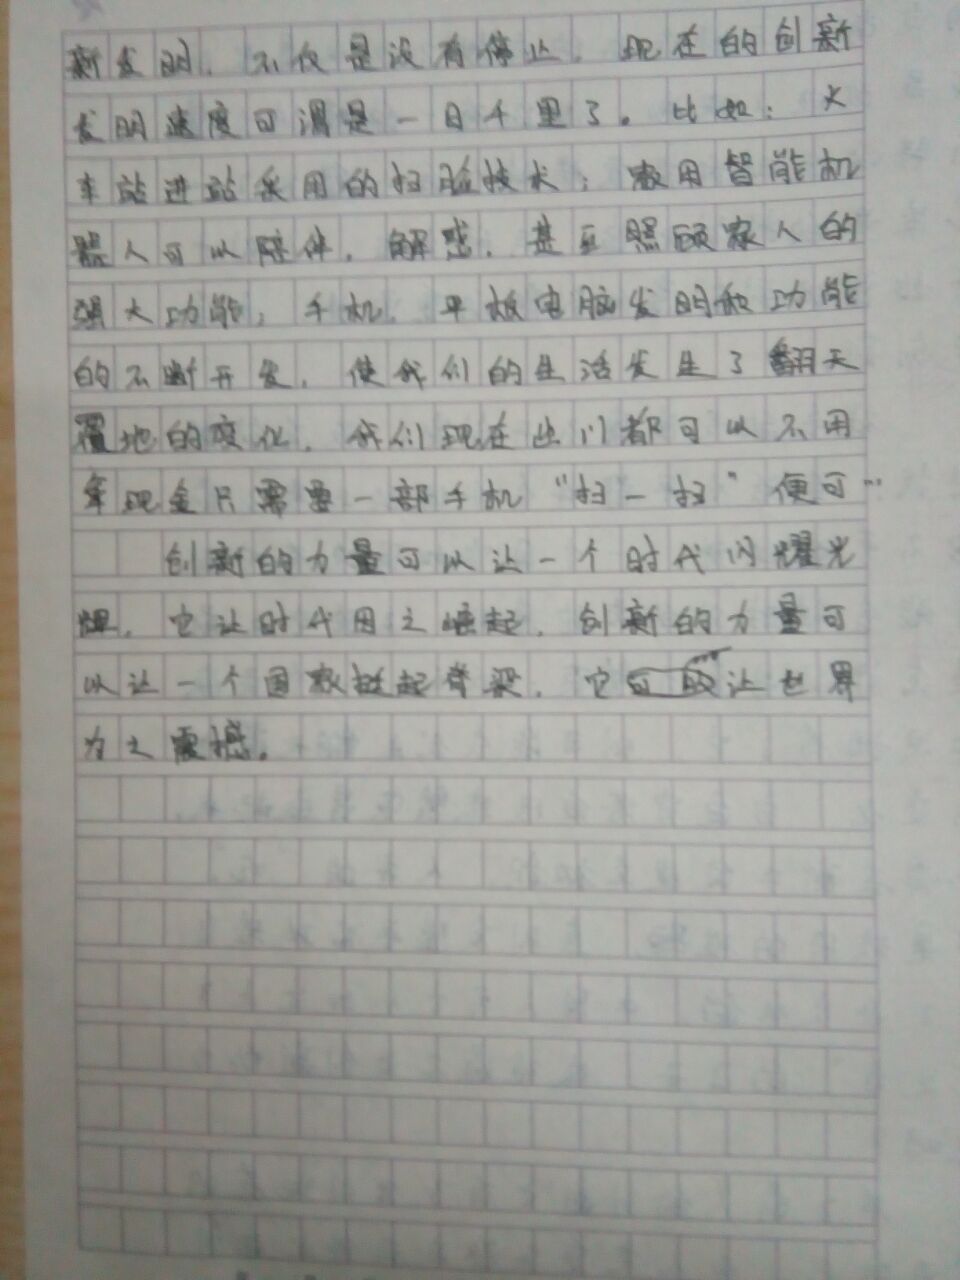 新发明，不仅是没有停止，现在的创新
发明速度可谓是一日千里了。比如：火
车站进站采用的扫脸技术；家用智能机
器人可以陪伴，解惑，甚至照顾家人的
强大功能；手机，平板电脑发明和功能
的不断开发，使我们的生活发生了翻天
覆地的变化，我们现在出门都可以不用
拿现金只需要一部手机“扫一扫”便可…
创新的力量可以让一个时代闪耀光
辉，它让时代因之崛起，创新的力量可
以让一个国家挺起脊梁，它让世界
为之震撼。